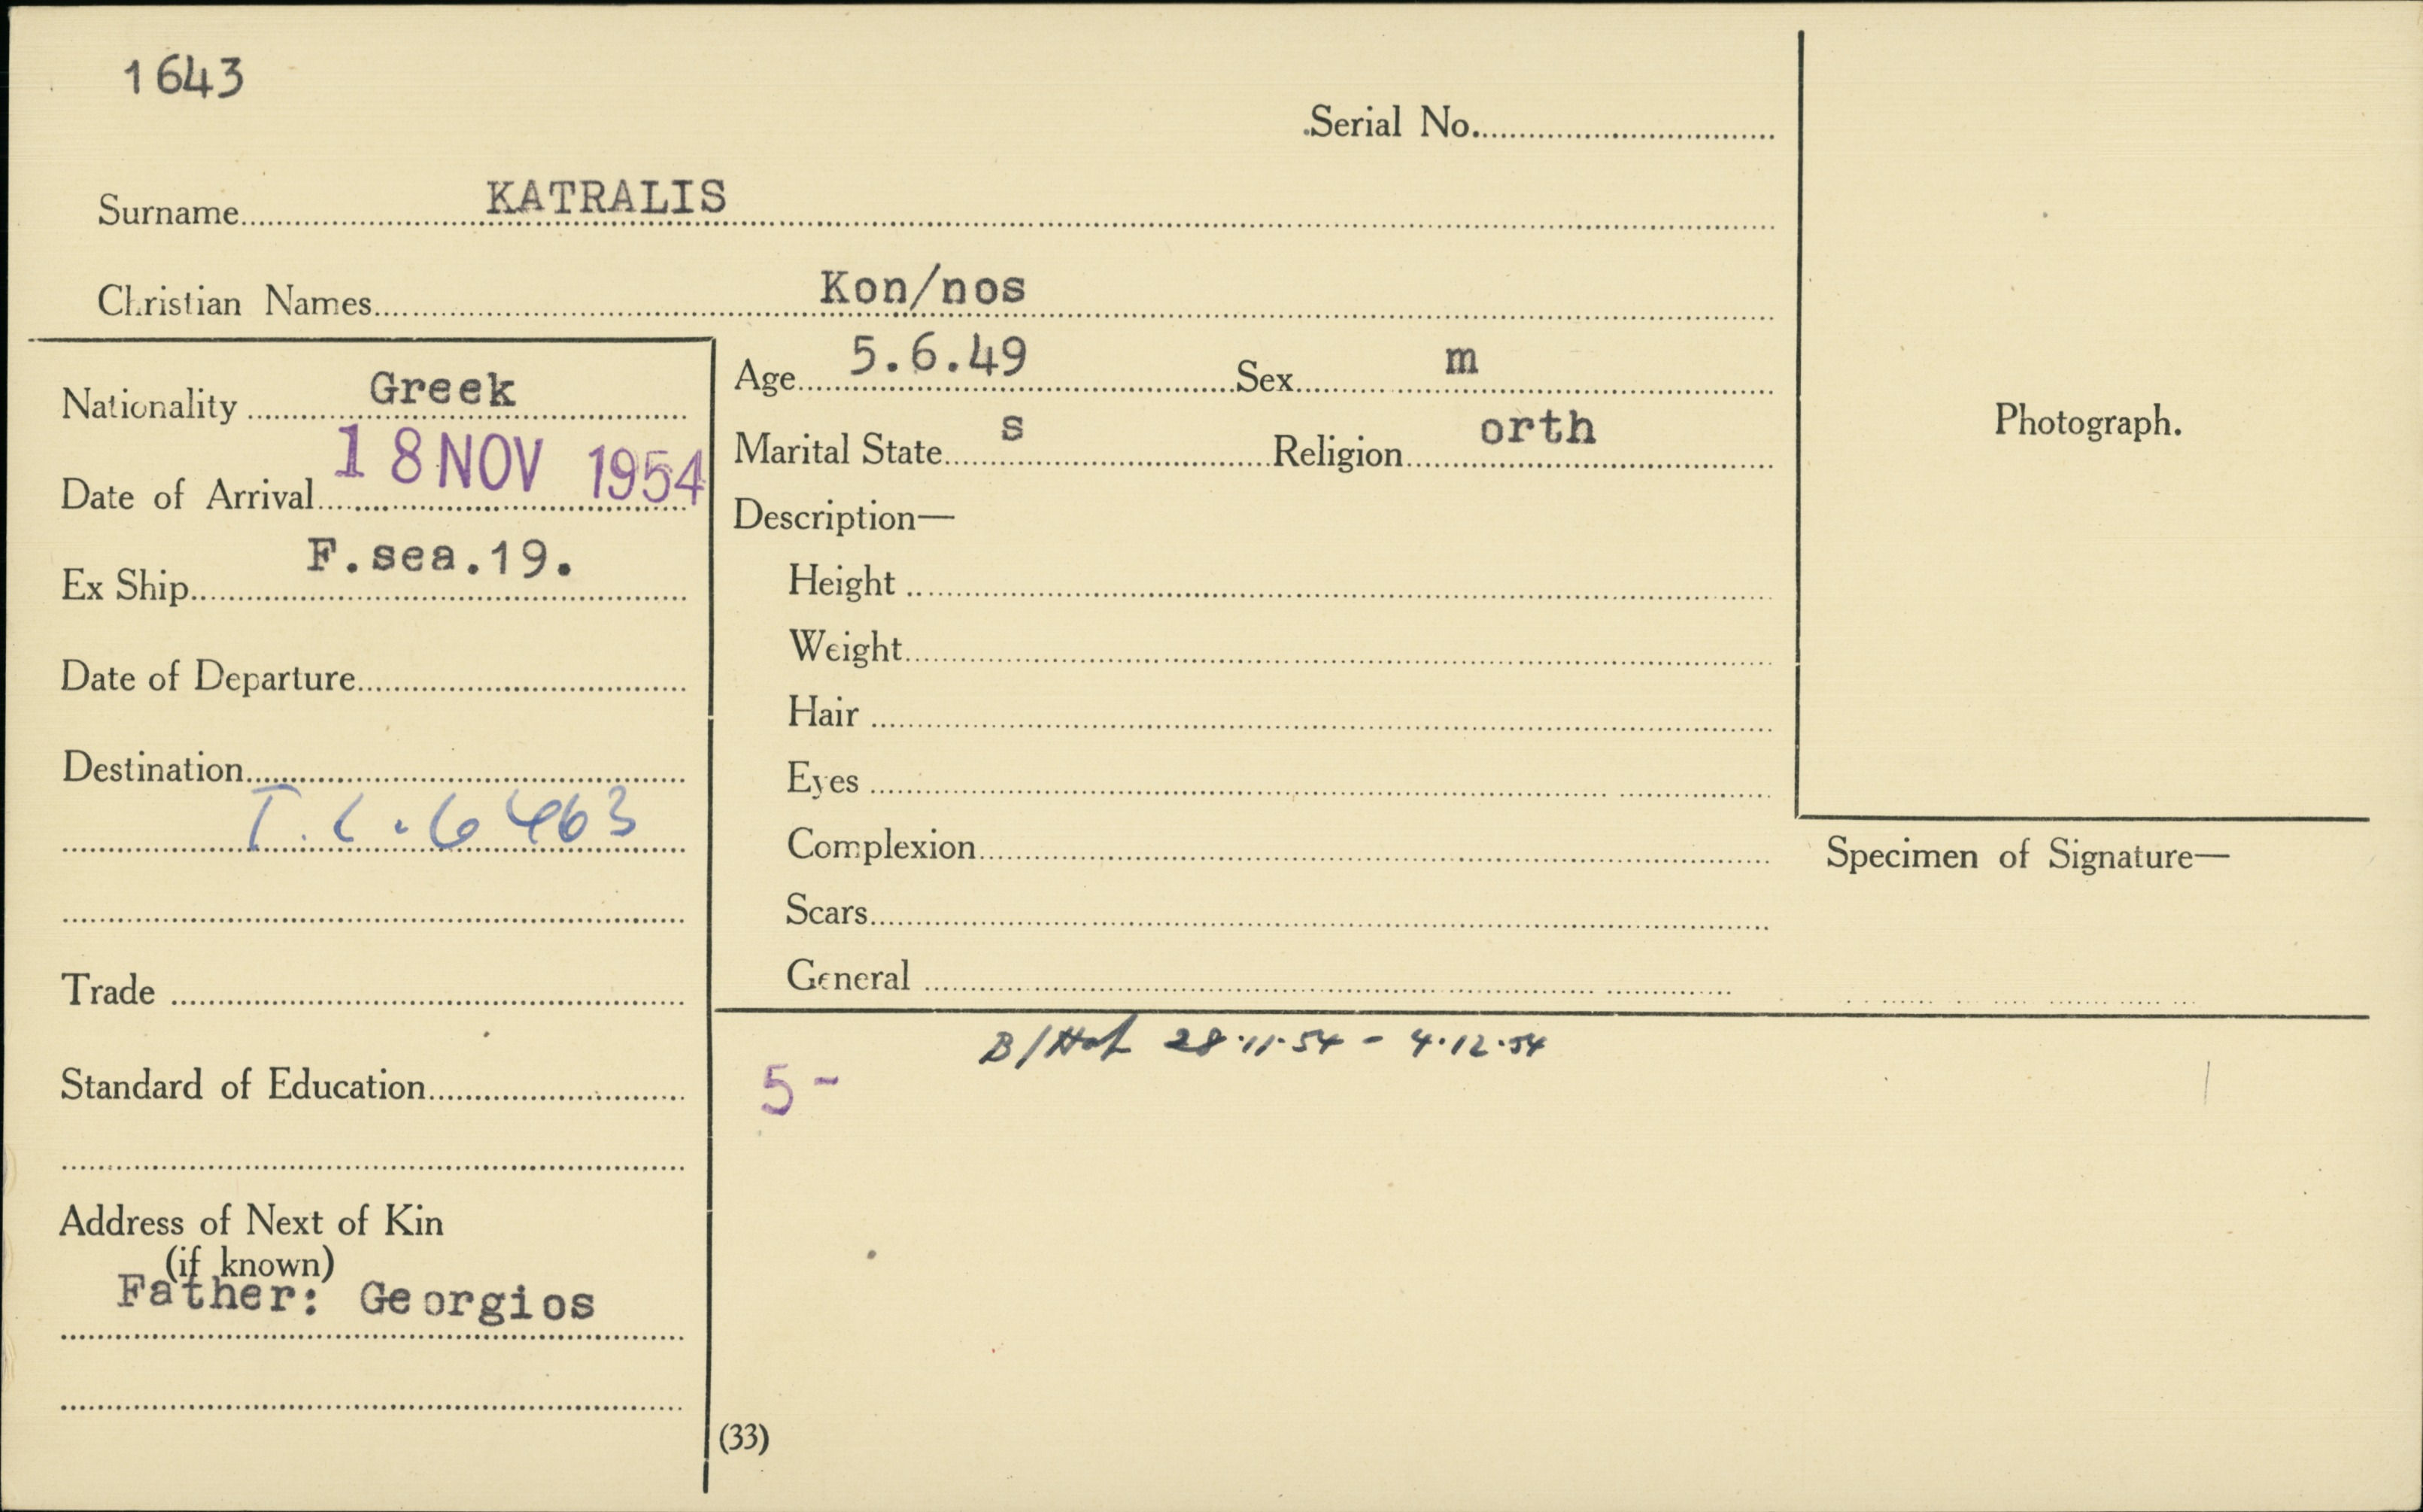 1643
Serial No.
Surname KATRALIS
Christian Names Kon/nos
Nationality Greek
Date of Arrival 18 NOV 1954
Ex Ship F.sea.19.
Date of Departure
Destination
T.C. 6463
Trade
Standard of Education
Address of Next of Kin
(if known)
Father: Georgios
Age 5.6.49 Sex m
Marital State s Religion orth
Description—
Height
Weight
Hair
Eyes
Complexion
Scars
General
Photograph.
Specimen of Signature—
28.11.54 - 4.12.54
5 -
(33)